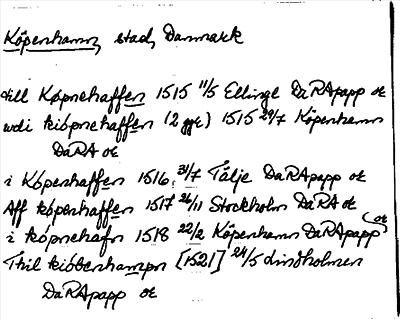 Köpenhamn, stad, Danmark
till Køpnehaffen 1515 11/5 Ellinge DaRApapp or
wdi kiöpnehaffen (2 ggr) 1515 29/7 Köpenhamn
DaRA or
i Köpenhaffen 1516 31/7 Tälje DaRApapp or
Aff köpenhaffen 1517 26/11 Stockholm DaRA or
i köpnehafn 1518 22/2 Köpenhamn DaRApapp or
Thil kiöbenhampn [1521] 24/5 Lindholmen
DaRApapp or